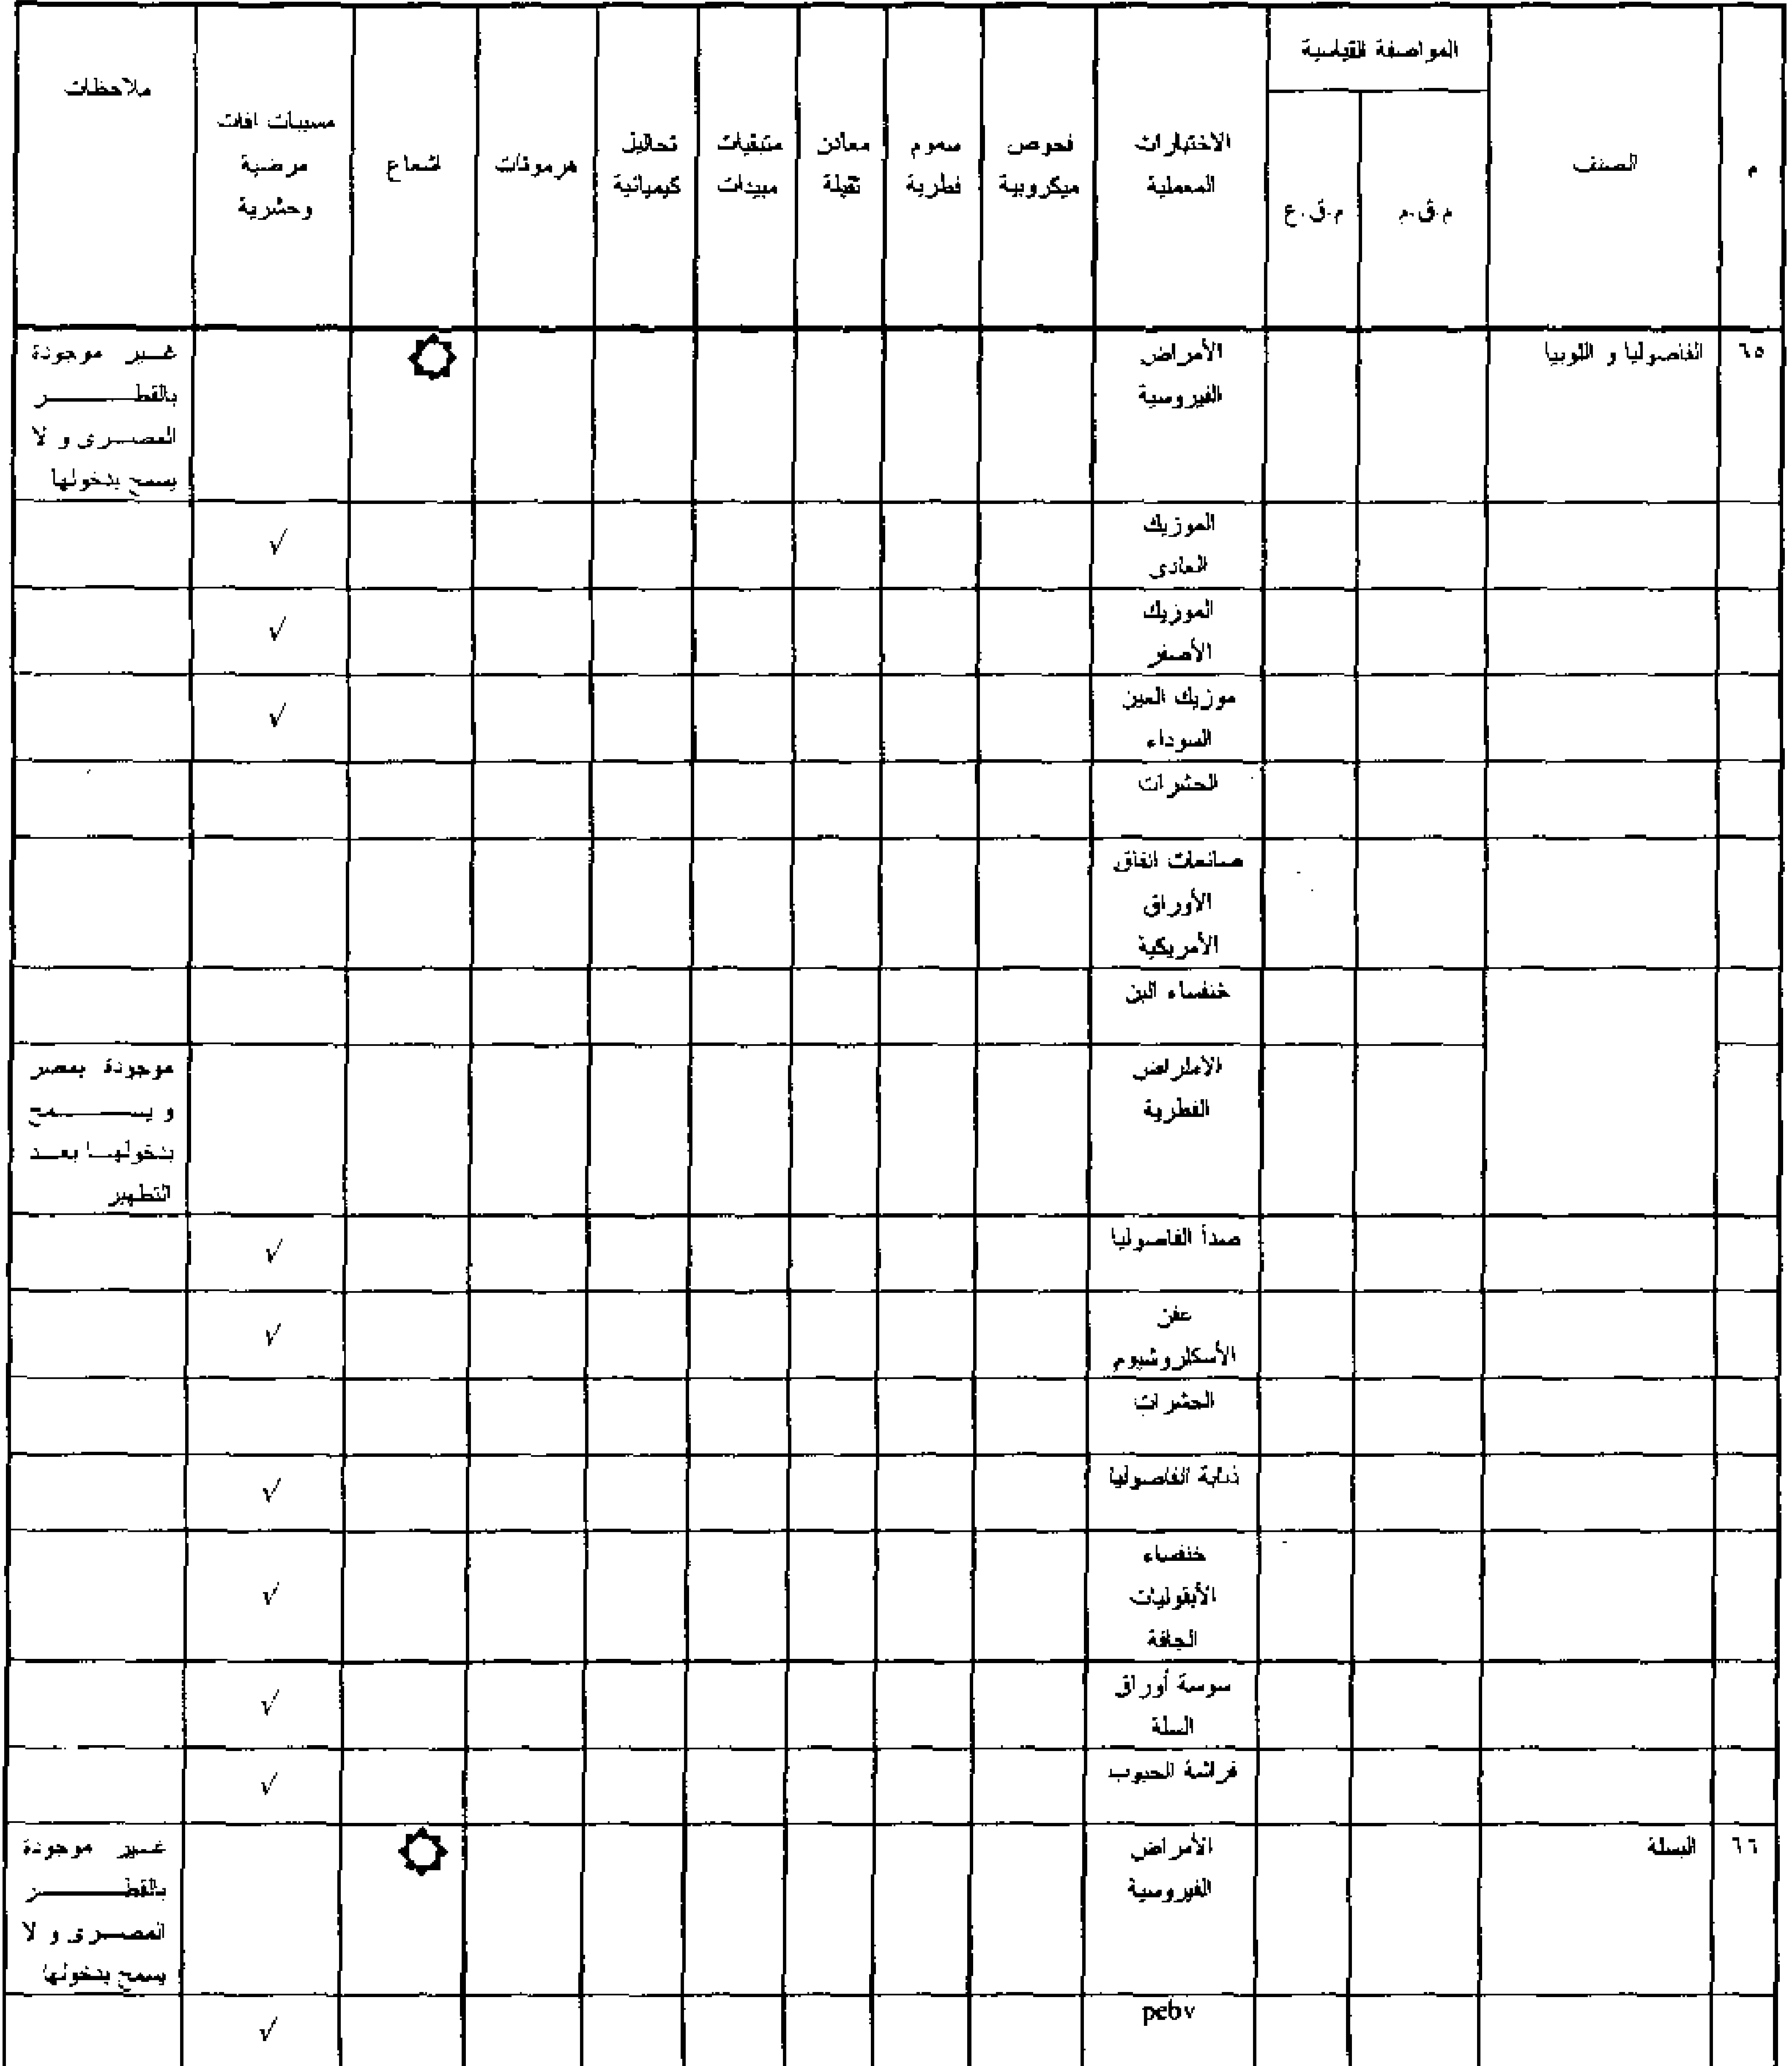 م
الصنف
المواصفة القياسية
م.ق.م
م.ق.ع
الاختبارات
المعملية
فحوص
ميكروبية
سموم
فطرية
معادن
ثقيلة
متبقيات
مبيدات
تحاليل
كيميائية
هرمونات
اشعاع
مسببات افات
مرضية
وحشرية
ملاحظات
٦٥
الفاصوليا و اللوبيا
الأمراض
الفيروسية
غير موجودة
بالقطر
المصرى و لا
يسمح بدخولها
الموزيك
العادى
√
الموزيك
الأصفر
√
موزيك العين
السوداء
√
الحشرات
صانعات انفاق
الأوراق
الأمريكية
خنفساء البن
الأمراض
الفطرية
موجودة بمصر
و يسمح
بدخولها بعد
التطهير
صدأ الفاصوليا
√
عفن
الأسكلروشيوم
√
الحشرات
ذبابة الفاصوليا
√
خنفساء
الأبقوليات
الجافة
√
سوسة أوراق
البسلة
√
فراشة الحبوب
√
٦٦
البسلة
الأمراض
الفيروسية
غير موجودة
بالقطر
المصرى و لا
يسمح بدخولها
pebv
√